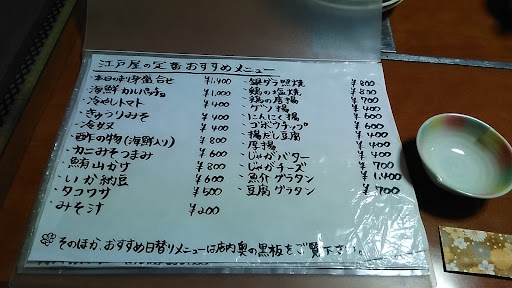 江戸屋の定番おすすめメニュー
・本日のお刺身盛合せ ¥1,400
・海鮮カルパッチョ ¥1,000
・冷やしトマト ¥400
・きゅうりみそ ¥400
・冷奴 ¥400
・酢の物(海鮮入り) ¥800
・カニみそつまみ ¥600
・鮪山かけ ¥800
・いか納豆 ¥600
・タコワサ ¥500
・みそ汁 ¥200
・銀ダラ照焼 ¥800
・鶏の塩焼 ¥800
・鶏の唐揚 ¥700
・ゲソ揚 ¥400
・にんにく揚 ¥400
・ポテトフラップ ¥600
・揚だし豆腐 ¥400
・厚揚 ¥400
・じゃがバター ¥400
・じゃがチーズ ¥700
・魚介グラタン ¥1,400
・豆腐グラタン ¥700
そのほか、おすすめ日替りメニューは店内奥の黒板をご覧下さい。